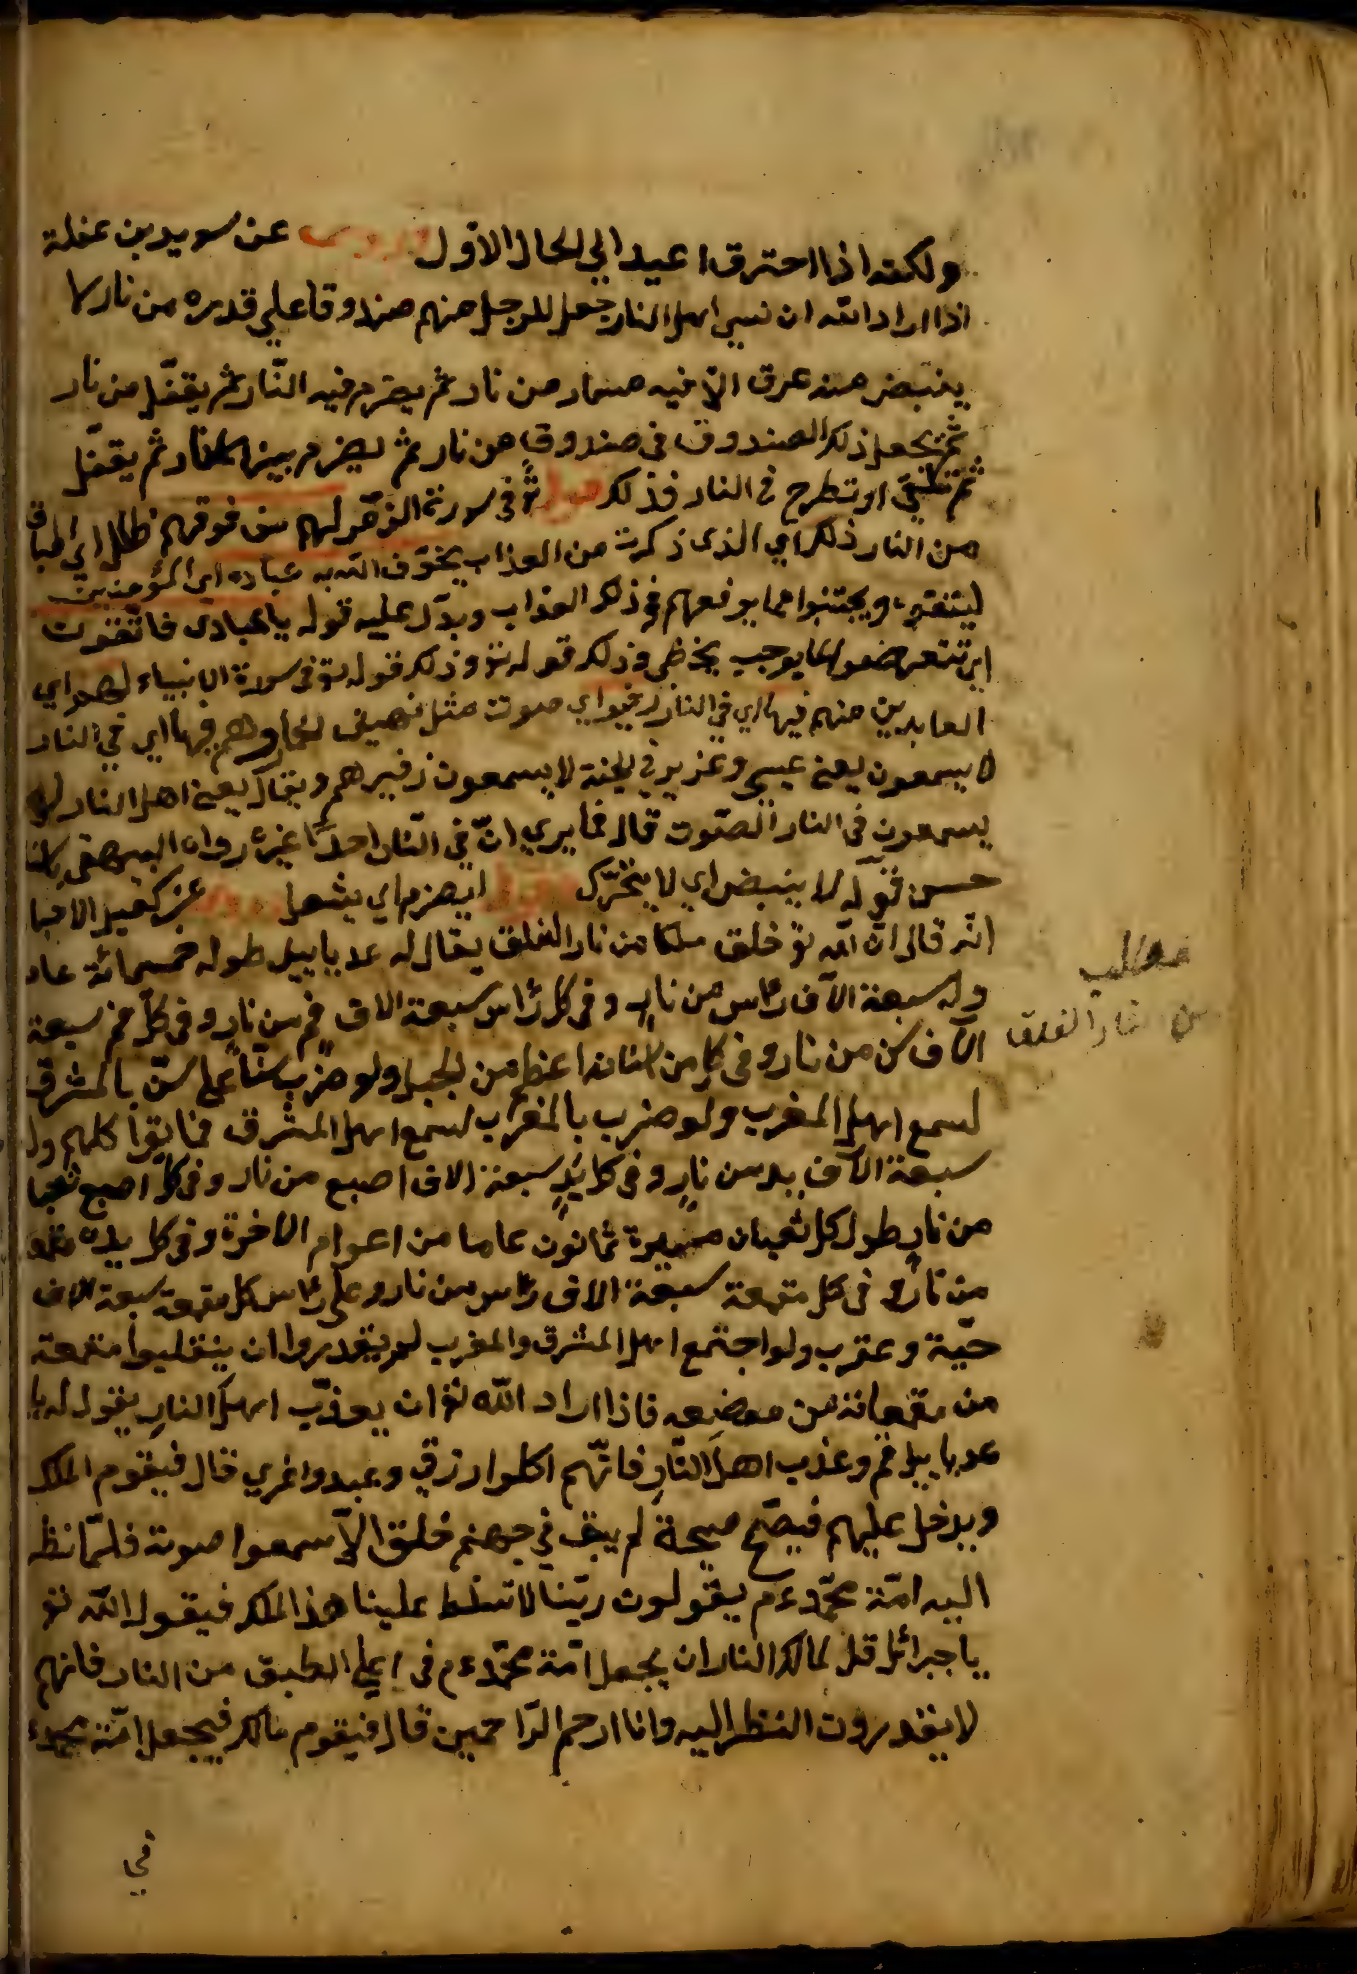 ولكنه اذا احترق اعيد الي الحال الاول عن سويد بن غفلة
اذا اراد الله ان نسي اهل النار جعل للرجل منهم صندوقا علي قدره من نار لا
ينبض منه عرق الا فيه مسمار من نار ثم يضرم فيه النار ثم يقفل من نار
ثم يجعل ذلك الصندوق في صندوق من نار ثم يضرم بينهما نار ثم يقفل
ثم او تطرح في النار فذلك قوله تع في سورة الزمر لهم من فوقهم ظلل اي اطباق
من النار ذلك اي الذى ذكرت من العذاب يخوف الله به عباده اي المؤمنين
ليتقوه ويجتنبوا عما يوقعهم في ذلك العذاب ويدل عليه قوله يا عبادى فاتقون
اي تتعرضوا لما يوجب وذلك قوله تع وذلك قوله تع في سورة الانبياء لهم اي
العابدين منهم فيها اي في النار زفير اي صوت مثل نهيق الحمار وهم فيها اي في النار
لا يسمعون يعني عيسي وعزير في الجنة لا يسمعون زفيرهم ويقال يعني اهل النار لا
يسمعون في النار الصوت قال فما يري ان في النار احدا غيره رواه البيهقي باسناد
حسن قوله لا ينبض اي لا يتحرك قوله يضرم اي يشعل عن كعب الاحبار
انه قال ان الله تع خلق ملكا من نار الفلق يقال له طوله خمسمائة عام
وله سبعة الآف رأس من نار وفي كل رأس سبعة الاف فم من نار وفي كل فم سبعة
الآف سن من نار وفي كل من اسنانه اعظم من الجبل ولو ضرب سنا علي سن بالمشرق
لسمع اهل المغرب ولو ضرب بالمغرب لسمع اهل المشرق كلهم وله
سبعة الآف يد من نار وفي كل يد سبعة الاف اصبع من نار وفي كل اصبع ثعبان
من نار طول كل ثعبان مسيرة ثمانون عاما من اعوام الاخرة وفي كل يده مقمعة
من نار وفي كل مقمعة سبعة الاف رأس من نار وعلي رأس كل مقمعة سبعة الاف
حية وعقرب ولو اجتمع اهل المشرق والمغرب لم يقدروا ان ينقلبوا مقمعة
من مقمعاته من موضعه فاذا اراد الله تع ان يعذب اهل النار يقول له يا
قم وعذب اهل النار فانهم اكلوا رزقي وعبدوا غيري قال فيقوم الملك
ويدخل عليهم فيصيح صيحة لم يبق في جهنم خلق الا سمعوا صوته فلما نظر
اليه امة محمد ءم يقولون ربنا لا تسلط علينا هذا الملك فيقول الله تع
يا جبرائل قل لمالك النار ان يجعل امة محمد ءم في اعلي الطبق من النار فانهم
لا يقدرون النظر اليه وانا ارحم الراحمين قال فيقوم مالك فيجعل امة محمد ء
في
مطلب
من نار الفلق